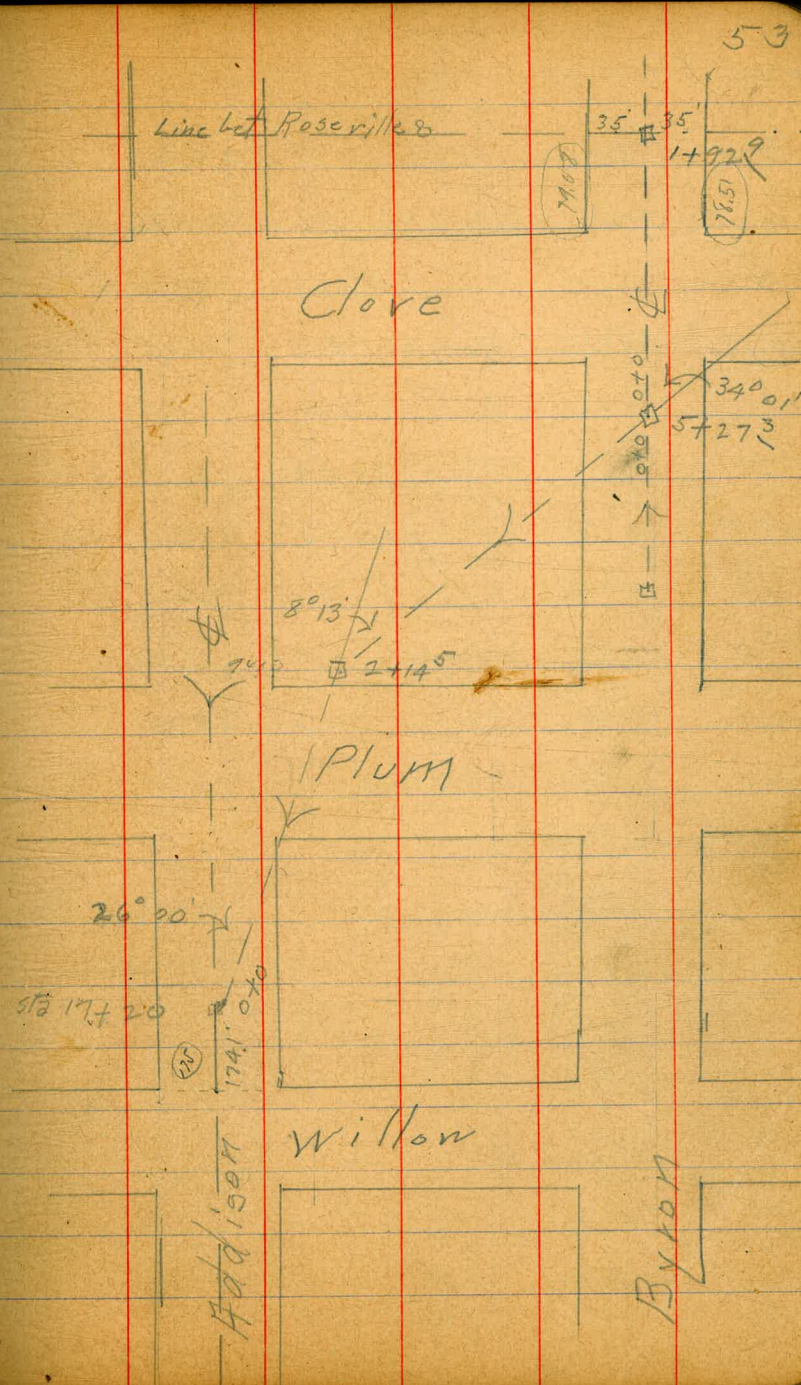 53
Line bet Roseville &
35' 35'
1+92⁹
79.08
78.51
Clove
℄
0+0
34° 01'
5+27³
0+0
8°13'
℄
2+14⁵
Plum
26° 00'
0+0
Sta 17+20
174.1'
Willow
Addison
Byron